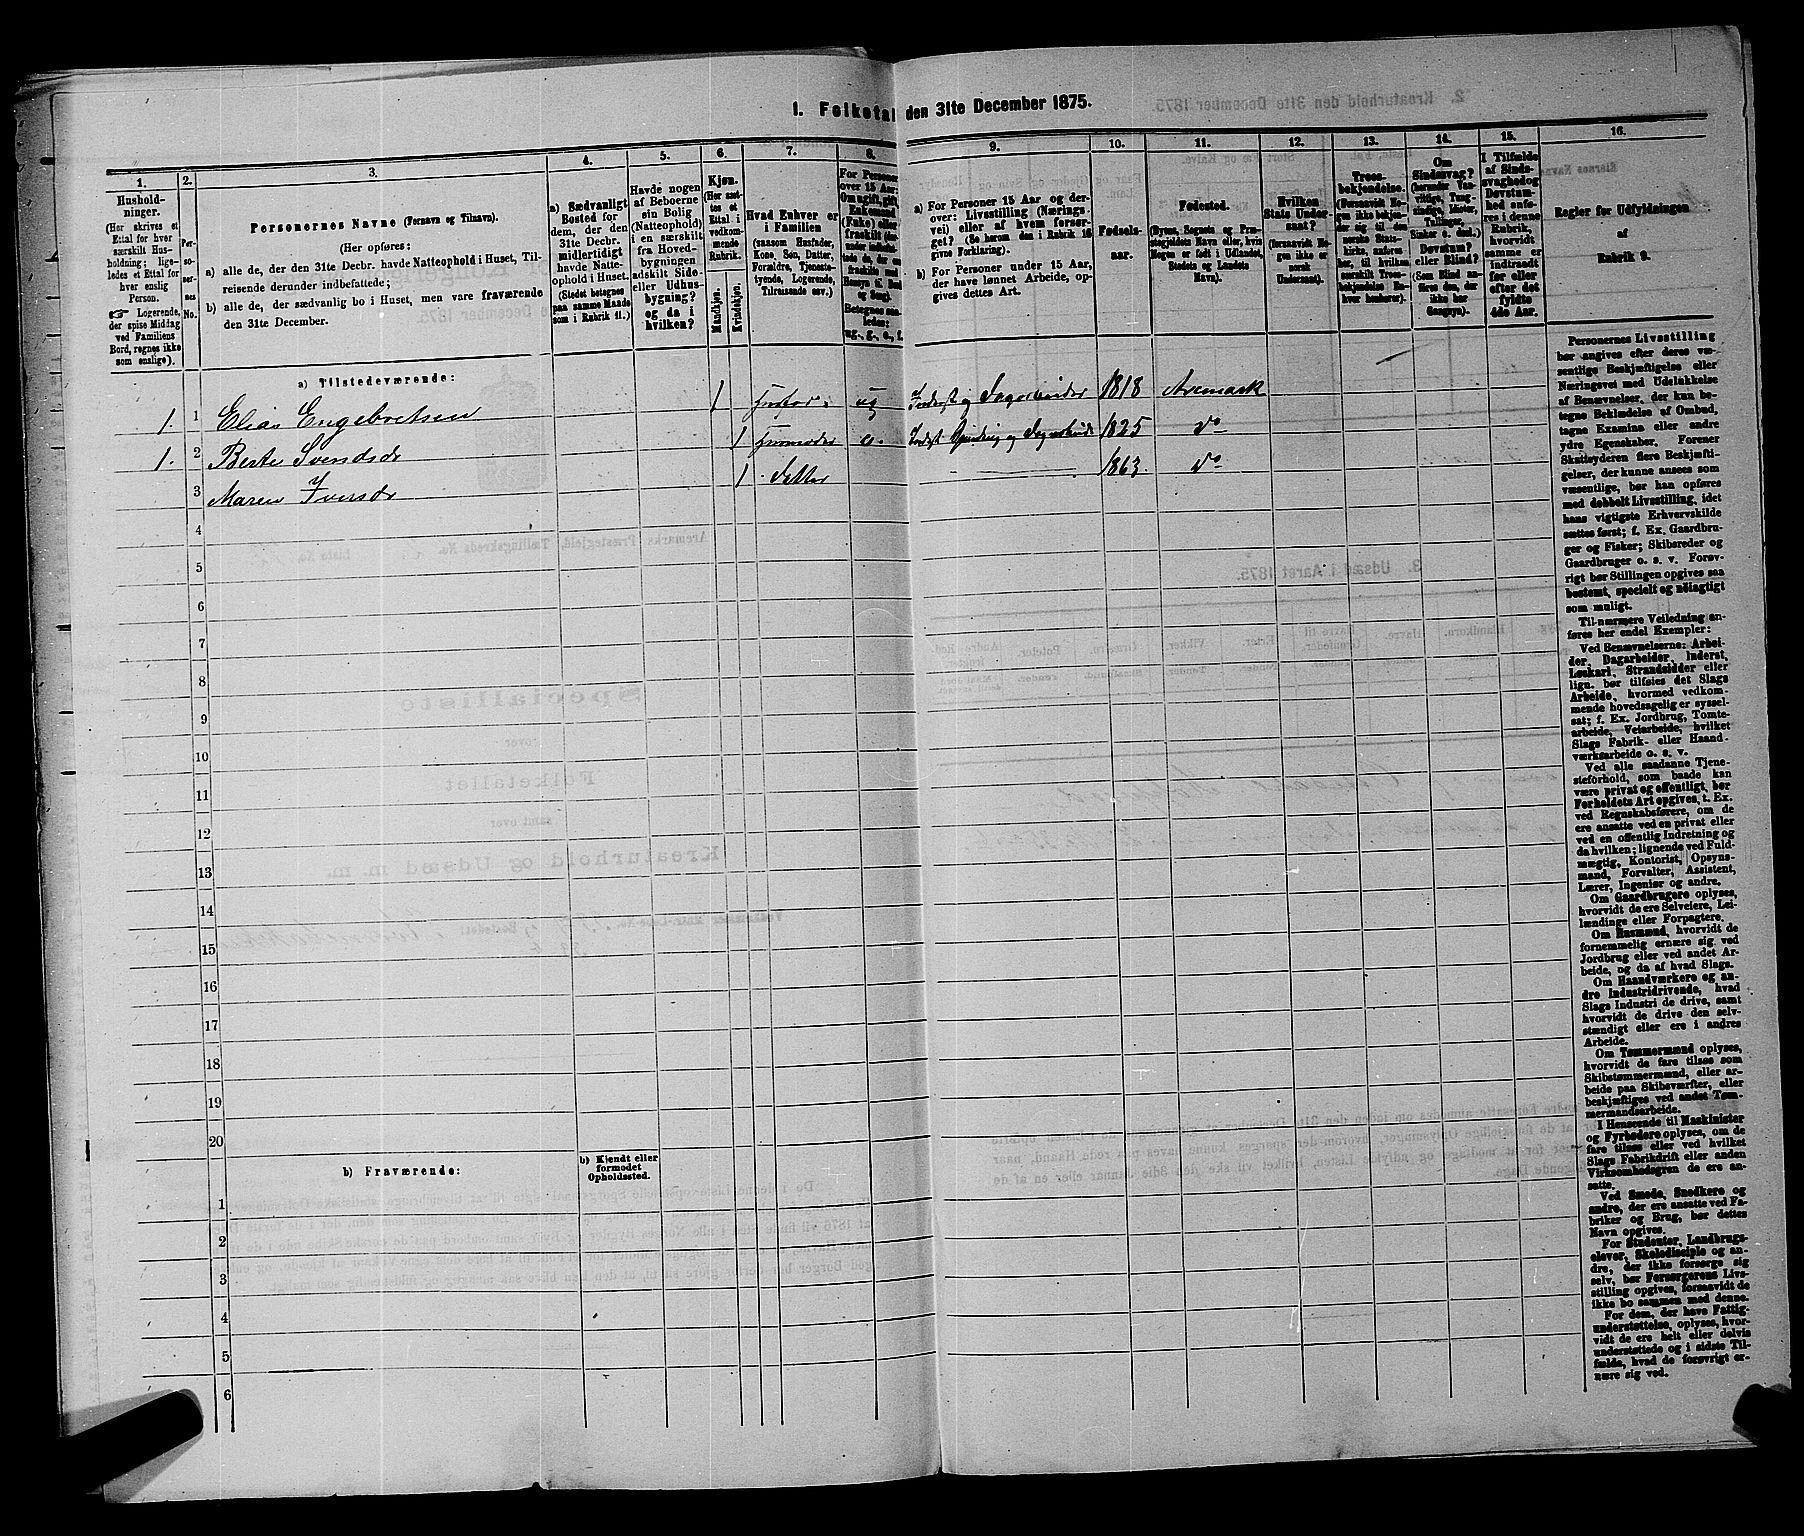 1. Folketal den 31te December 1875.
1.
Hushold-
ninger.
(Her skrives et
Ettal for hver
særskilt Hus-
holdning; lige-
ledes et Ettal for
hver enslig
Person.
Logerende,
der spise Middag
ved Familiens
Bord, regnes ikke
som enslige).
2.
Per-
so-
ner-
nes
No.
3.
Personernes Navne (Fornavn og Tilnavn).
(Her opføres:
a) alle de, der den 31te Decbr. havde Natteophold i Huset, Til-
reisende derunder indbefattede;
b) alle de, der sædvanlig bo i Huset, men vare fraværende
den 31te December.
4.
a) Sædvanligt
Bosted for
dem, der den
31te Decbr.
midlertidigt
havde Natte-
ophold i Huset.
(Stedet betegnes
paa samme Maade
som i Rubrik 11.)
5.
Havde nogen
af Beboerne
sin Bolig
(Natteophold)
i en særskilt
fra Hoved-
bygningen
adskilt Side-
eller Udhus-
bygning?
og da i
hvilken?
6.
Kjøn.
(Her sæt-
tes et
Ettal i
vedkom-
mende
Rubrik.
Mandkjøn.
Kvindekjøn.
7.
Hvad Enhver er
i Familien
(saasom Husfader,
Kone, Søn, Datter,
Forældre, Tjeneste-
tyende, Logerende,
Tilreisende osv.)
8.
For Personer
over 15 Aar:
Om ugift, gift,
Enkemand
(Enke) eller
fraskilt
ug., g., e., f.
9.
a) For Personer 15 Aar og der-
over: Livsstilling (Nærings-
vei) eller af hvem forsør-
get? (Se herom den i Rubrik 16
givne Forklaring).
b) For Personer under 15 Aar,
der have lønnet Arbeide, op-
gives dettes Art.
10.
Fødsels-
aar.
11.
Fødested.
(Byens, Sognets og Præ-
stegjeldets Navn eller, hvis
Nogen er født i Udlandet,
Stedets og Landets
Navn).
12.
Hvilken
Stats Under-
saat?
(forsaavidt No-
gen ikke er
norsk
Undersaat).
13.
Troes-
bekjendelse.
(Forsaavidt No-
gen ikke bekjen-
der sig til den
norske Stats-
kirke, anføres
her, til hvilken
særskilt Troes-
bekjendelse En-
hver henhører).
14.
Om
Sindssvag?
Døvstum?
eller Blind?
15.
I Tilfælde
af Sinds-
svaghed og
Døvstum-
hed anfø-
res i denne
Rubrik,
hvorvidt
samme er
indtraadt
før eller
efter det
fyldte
4de Aar.
16.
Regler for Udfyldningen
af
Rubrik 9.
a) Tilstedeværende:
1. 1 Elias Engebretsen 1 Husfar. ug Inderst og Dagarbeider 1818 Aremark
1. 2 Berte Svendsdr 1 Husmoder e. Inderst Spinding og 1825 do
3 Maren Iversdr 1 datter 1863. do
4
5
6
7
8
9
10
11
12
13
14
15
16
17
18
19
20
b) Fraværende:
b) Kjendt eller
formodet
Opholdssted.
1
2
3
4
5
6
Personernes Livsstilling
bør angives efter deres væ-
sentlige Beskjæftigelse eller
Næringsvei med Udelukkelse
af Benævnelser, der kun be-
tegne Beklædelse af Ombud,
tagne Examina eller andre
ydre Egenskaber. Forener
Skatteyderen flere Beskjæfti-
gelser, der kunne ansees som
væsentlige, bør han opføres
med dobbelt Livsstilling, idet
hans vigtigste Erhvervskilde
sættes først; f. Ex. Gaardbru-
ger og Fisker; Skibsreder og
Gaardbruger o. s. v. Forøv-
rigt bør Stillingen opgives saa
bestemt, specielt og nøiagtigt
som muligt.
Til nærmere Veiledning an-
føres her endel Exempler:
Ved Benævnelserne: Arbei-
der, Dagarbeider, Inderst,
Løskarl, Strandsidder eller
lign. bør tilføies det Slags
Arbeide, hvormed vedkom-
mende hovedsagelig er syssel-
sat; f. Ex. Jordbrug, Tomte-
arbeide, Veiarbeide, hvilket
Slags Fabrik- eller Haand-
værksarbeide o. s. v.
Ved alle saadanne Tjene-
steforhold, som baade kan
være privat og offentligt, bør
Forholdets Art opgives, t. Ex.
ved Regnskabsførere, om de
ere ansatte ved en privat eller
ved en offentlig Indretning og
da hvilken; lignende ved Fuld-
mægtig, Kontorist, Opsyns-
mand, Forvalter, Assistent,
Lærer, Ingeniør og andre.
Om Gaardbrugere oplyses,
hvorvidt de ere Selveiere, Lei-
lændinge eller Forpagtere.
Om Husmænd, hvorvidt de
fornemmelig ernære sig ved
Jordbrug eller ved andet Ar-
beide, og da af hvad Slags.
Om Haandværkere og an-
dre Industridrivende, hvad
Slags Industri de drive, samt
hvorvidt de drive den selv-
stændigt eller ere i andres
Arbeide.
Om Tømmermænd oplyses,
hvorvidt de fare tilsøs som
Skibstømmermænd, eller ar-
beide paa Skibsværfter, eller
beskjæftiges ved andet Tøm-
mermandsarbeide.
I Henseende til Maskinister
og Fyrbødere oplyses, om de
fare tilsøs eller ved hvilket
Slags Fabrikdrift eller anden
Virksomhedsgren de ere an-
satte.
Ved Smede, Snedkere og
andre, der ere ansatte ved Fa-
briker og Brug, bør dettes
Navn opgives.
For Studenter, Landbrugs-
elever, Skoledisciple og an-
dre, der ikke forsørge sig
selv, bør Forsørgerens Livs-
stilling opgives, forsaavidt de
ikke bo sammen med denne.
For dem, der have Fattig-
understøttelse, oplyses, hvor-
vidt de ere helt eller delvis
understøttede og i sidste Til-
fælde, hvad de forøvrigt er-
nære sig ved.